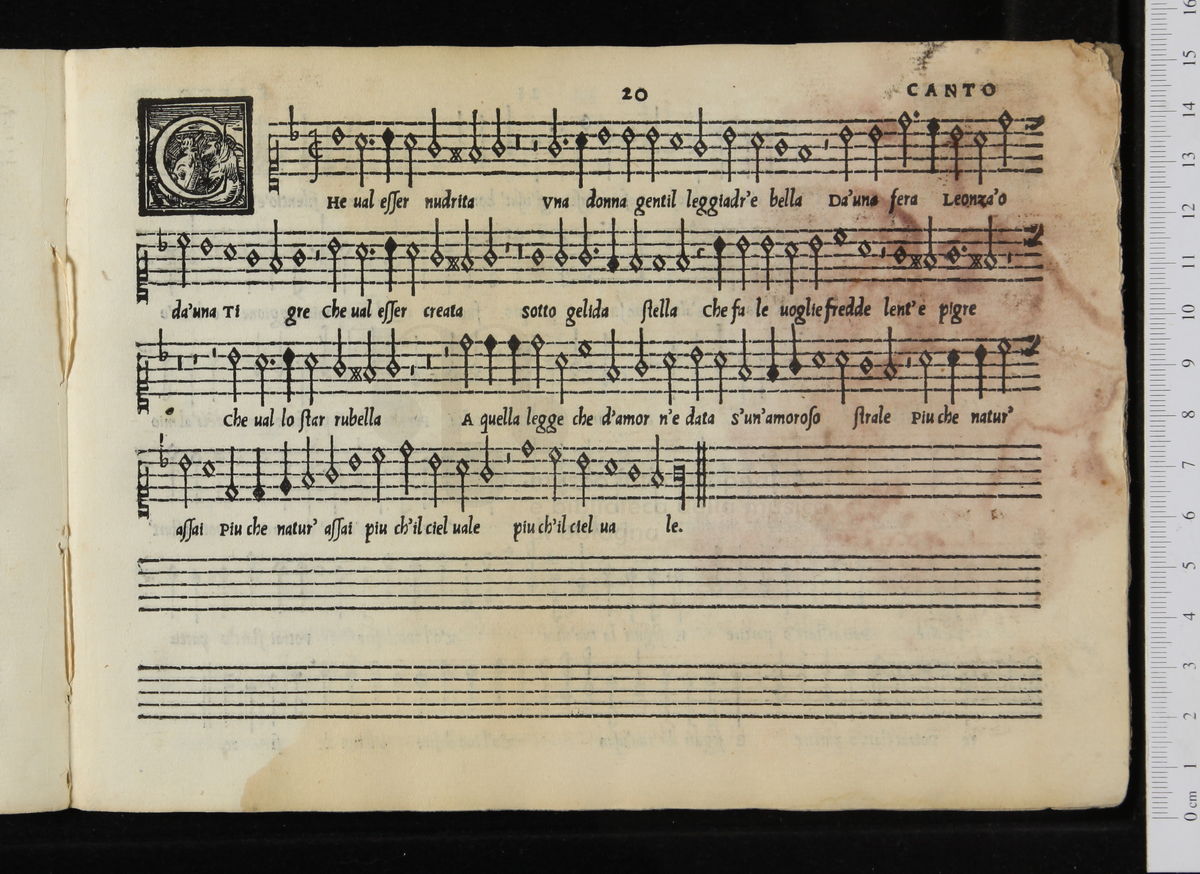 20
CANTO
CHe ual eſſer nudrita Vna donna gentil leggiadr'e bella Da'una fera Leonza'o
da'una Ti gre Che ual eſſer creata sotto gelida ſtella Che fa le uoglie fredde lent'e pigre
Che ual lo ſtar rubella A quella legge che d'amor n'e data S'un'amoroſo ſtrale Piu che natur'
aſſai Piu che natur' aſſai piu ch'il ciel uale piu ch'il ciel ua le.
0 cm 1 2 3 4 5 6 7 8 9 10 11 12 13 14 15 16